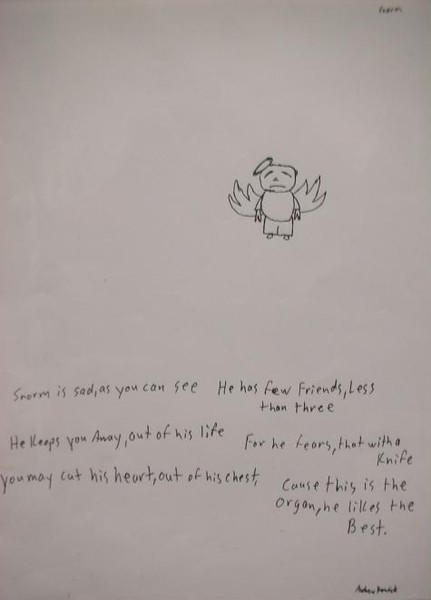 Snorm is sad, as you can see
He has few Friends, Less
than three
He Keeps you Away, out of his life
For he fears, that with a
Knife
you may cut his heart, out of his chest,
Cause this is the
Organ, he likes the
Best.